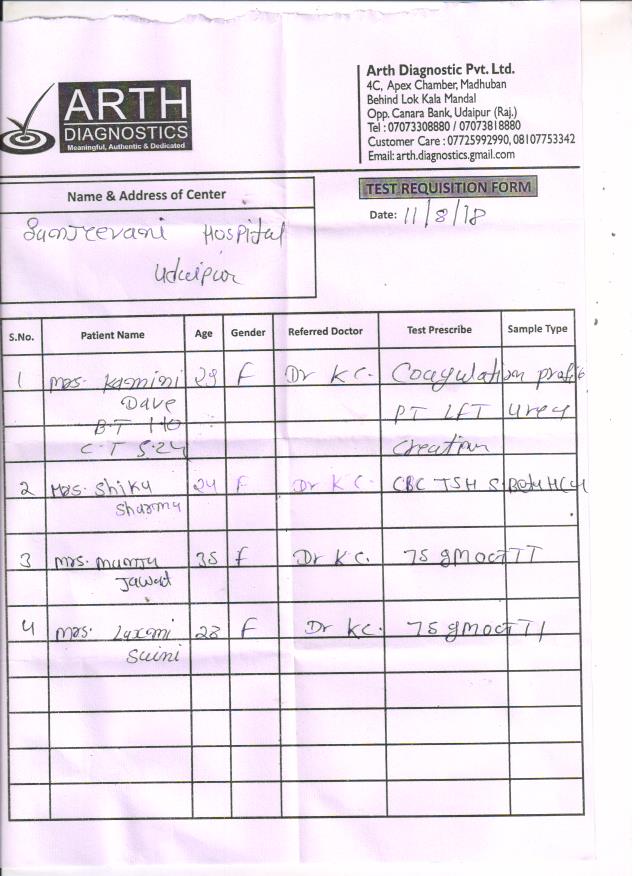 ARTH
DIAGNOSTICS
Meaningful, Authentic & Dedicated
Arth Diagnostic Pvt. Ltd.
4C, Apex Chamber, Madhuban
Behind Lok Kala Mandal
Opp. Canara Bank, Udaipur (Raj.)
Tel : 07073308880 / 07073818880
Customer Care : 07725992990, 08107753342
Email: arth.diagnostics.gmail.com
Name & Address of Center
TEST REQUISITION FORM
Date: 11/8/18
Sanjeevani Hospital
Udaipur
S.No. Patient Name Age Gender Referred Doctor Test Prescribe Sample Type
1 Mrs. Kamini 29 F Dr KC. Coagulation profile
Dave PT LFT Urea
B.T 1.10
C.T 5.24 Creatian
2 Mrs. Shika 24 F Dr KC. CBC TSH S. Beta HCG
Sharma
3 Mrs. 35 F Dr KC. 75 gm
4 Mrs. Laxmi 28 F Dr KC. 75 gm